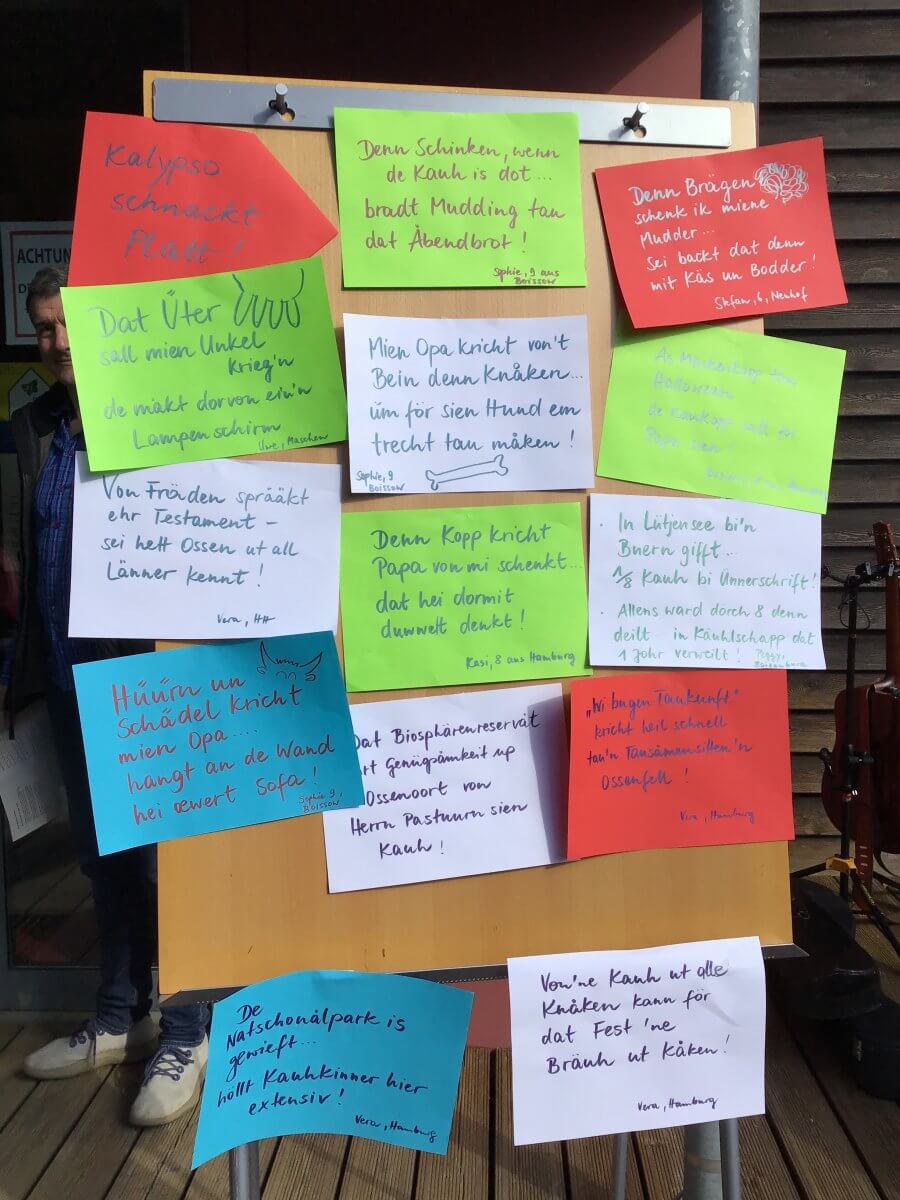 Kalypso
schnackt
Platt!
Denn Schinken, wenn
de Kauh is dot...
bradt Mudding tau
dat Åbendbrot!
Sophie, 9 aus
Boissow
Denn Brägen
schenk ik miene
Mudder...
Sei backt dat denn
mit Käs un Bodder!
6, Neuhof
ACHTUNG
Dat Üter
sall mien Unkel
krieg'n
de makt dorvon ein'n
Lampenschirm
Uwe, Maschen
Mien Opa kricht von't
Bein denn Knåken...
üm för sien Hund em
trecht tau måken!
Sophie, 9
Boissow
Halloween
de Kauhkopp sall för
Papa sien!
Von Fräden språåkt
ehr Testament -
sei hett Ossen ut all
Länner kennt!
Vera, HH
Denn Kopp kricht
Papa von mi schenkt...
dat hei dormit
duwwelt denkt!
Kasi, 8 aus Hamburg
· In Lütjensee bi'n
Buern gifft...
1/8 Kauh bi Ünnerschrift!
· Allens ward dörch 8 denn
deilt - in Käuhlschapp dat
1 Johr verweilt!
Peggy,
Hüürn un
Schädel kricht
mien Opa....
hangt an de Wand
hei œwert Sofa!
Sophie 9,
Boissow
Dat Biosphärenreservåt
Genügsåmkeit up
Ossenoort von
Herrn Pastuurn sien
Kauh!
„Wi bugen Taukunft"
kricht heil schnell
tau'n Tausåmensitten 'n
Ossenfell!
Vera, Hamburg
De
Natschonålpark is
gewieft...
höllt Kauhkinner hier
extensiv!
Vera, Hamburg
Von'ne Kauh ut alle
Knåken kann för
dat Fest 'ne
Bräuh ut kåken!
Vera, Hamburg